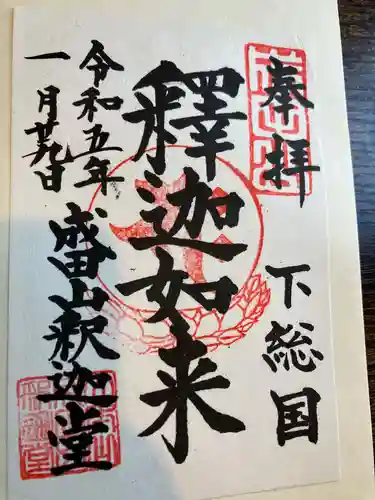 奉拝
下総国
釋迦如来
成田山釈迦堂
令和五年
一月廿九日